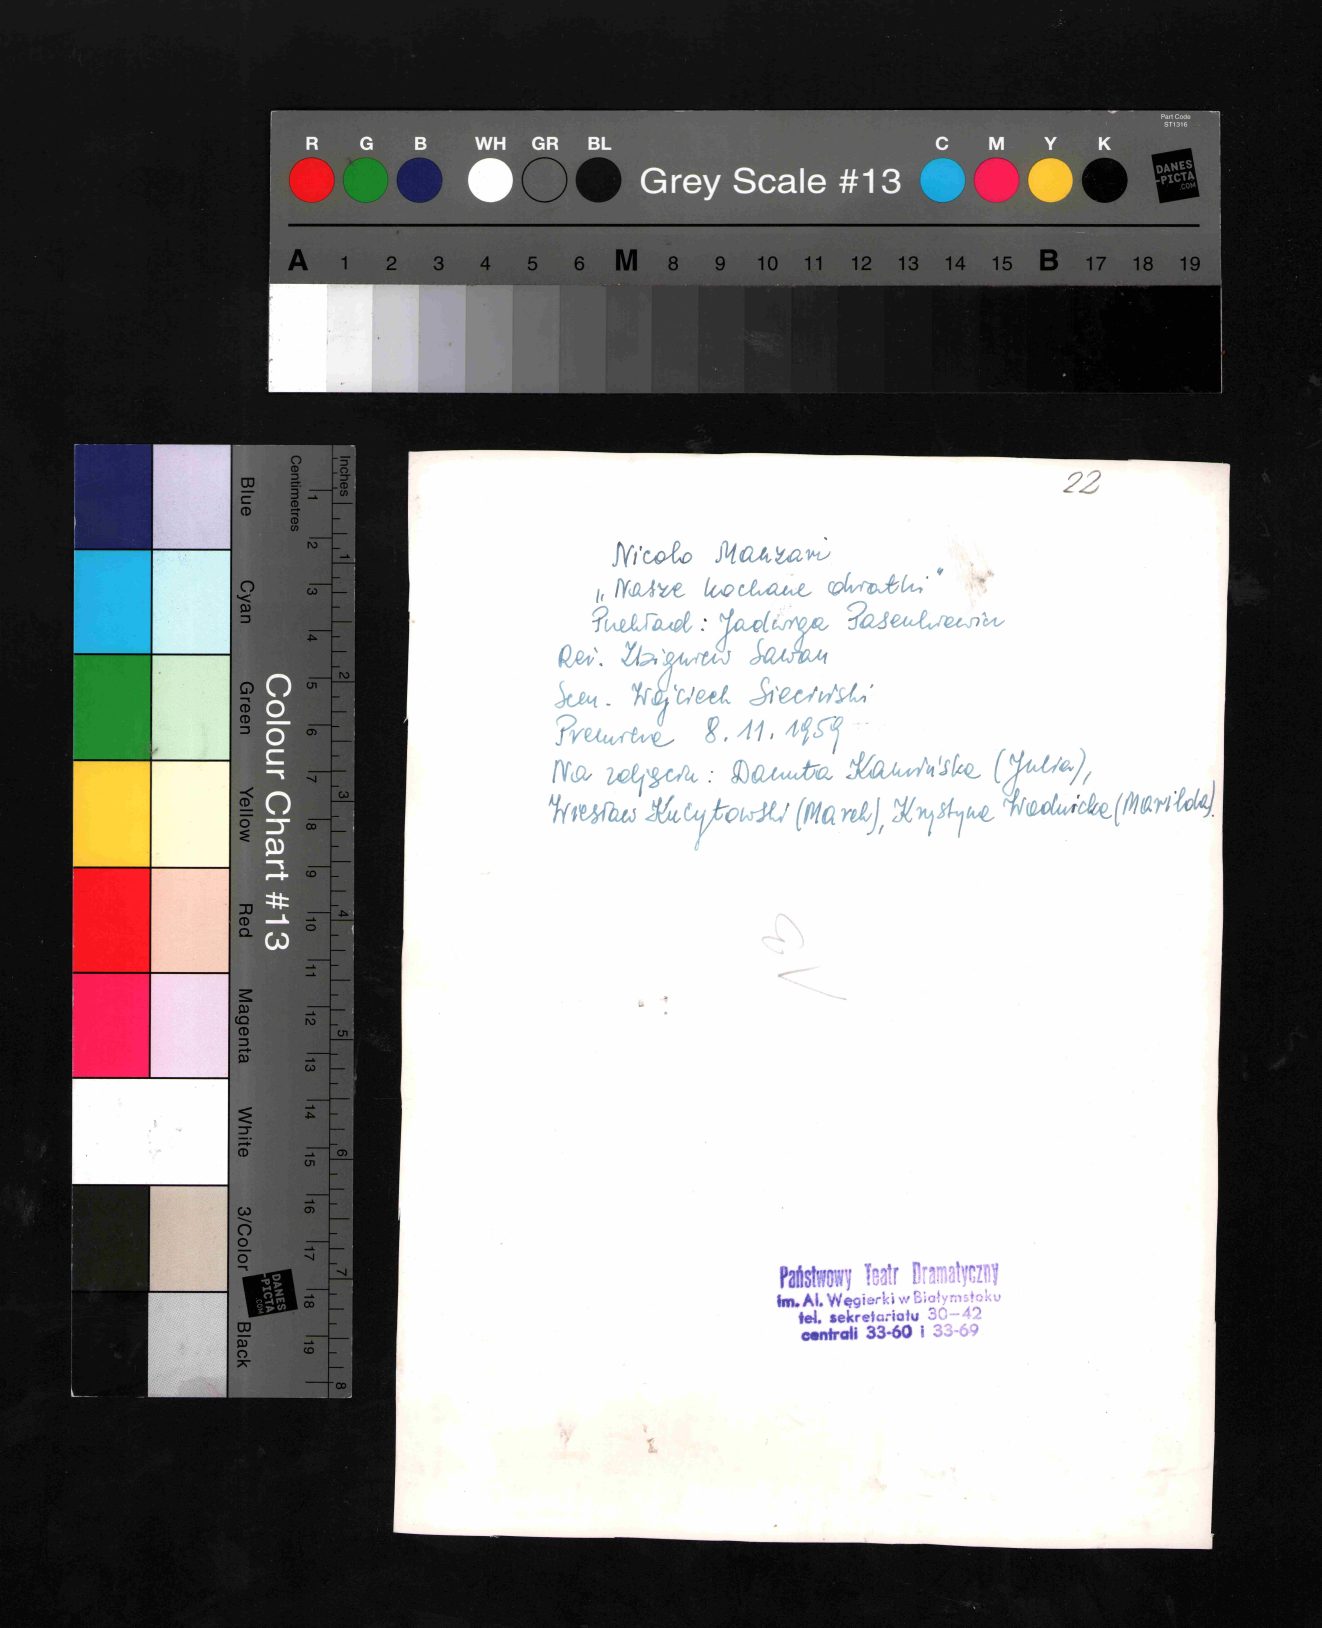 Part Code
ST1316
R G B WH GR BL Grey Scale #13 C M Y K
DANES
-PICTA
.COM
A 1 2 3 4 5 6 M 8 9 10 11 12 13 14 15 B 17 18 19
Colour Chart #13
Blue Cyan Green Yellow Red Magenta White 3/Color Black
Centimetres 1 2 3 4 5 6 7 8 9 10 11 12 13 14 15 16 17 18 19
Inches 1 2 3 4 5 6 7 8
DANES
-PICTA
.COM
22
Nicolo Manzari
„Nasze kochane dziatki"
Przekład: Jadwiga Pasenkiewicz
Reż. Zbigniew Sawan
Scen. Wojciech Sieciński
Premiera 8.11.1959
Na zdjęciu: Danuta Kamińska (Julia),
Wiesław (Marek), Krystyna Wodnicka (Marilda).
3
Państwowy Teatr Dramatyczny
im. Al. Węgierki w Białymstoku
tel. sekretariatu 30-42
centrali 33-60 i 33-69